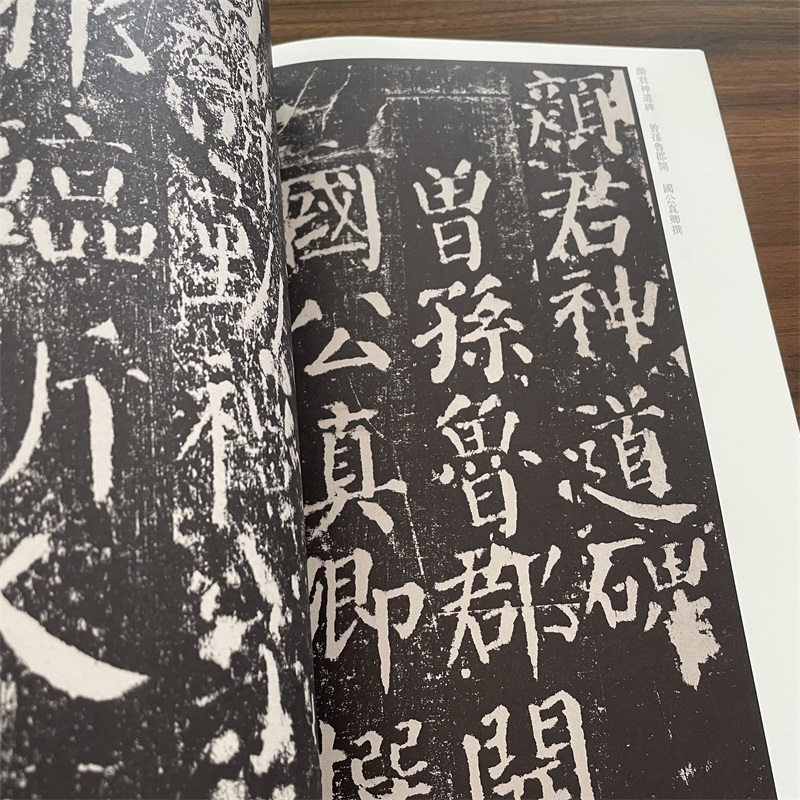 顏君神道碑　曾孫魯郡開　國公真卿撰
顏君神道碑
曾孫魯郡開
國公真卿撰
臨沂人